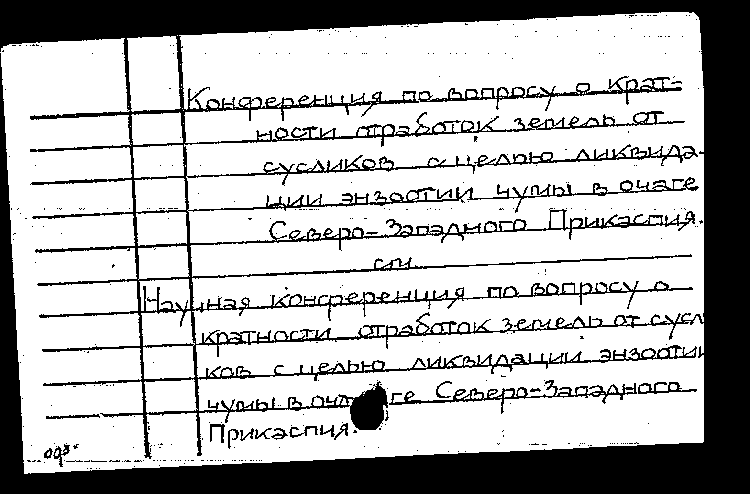 Конференция по вопросу о крат=
ности отработок земель от
сусликов с целью ликвида-
ции энзоотии чумы в очаге
Северо-Западного Прикаспия.
см.
Научная конференция по вопросу о
кратности отработок земель от сусл
ков с целью ликвидации энзоотии
чумы в очаге Северо-Западного
Прикаспия.